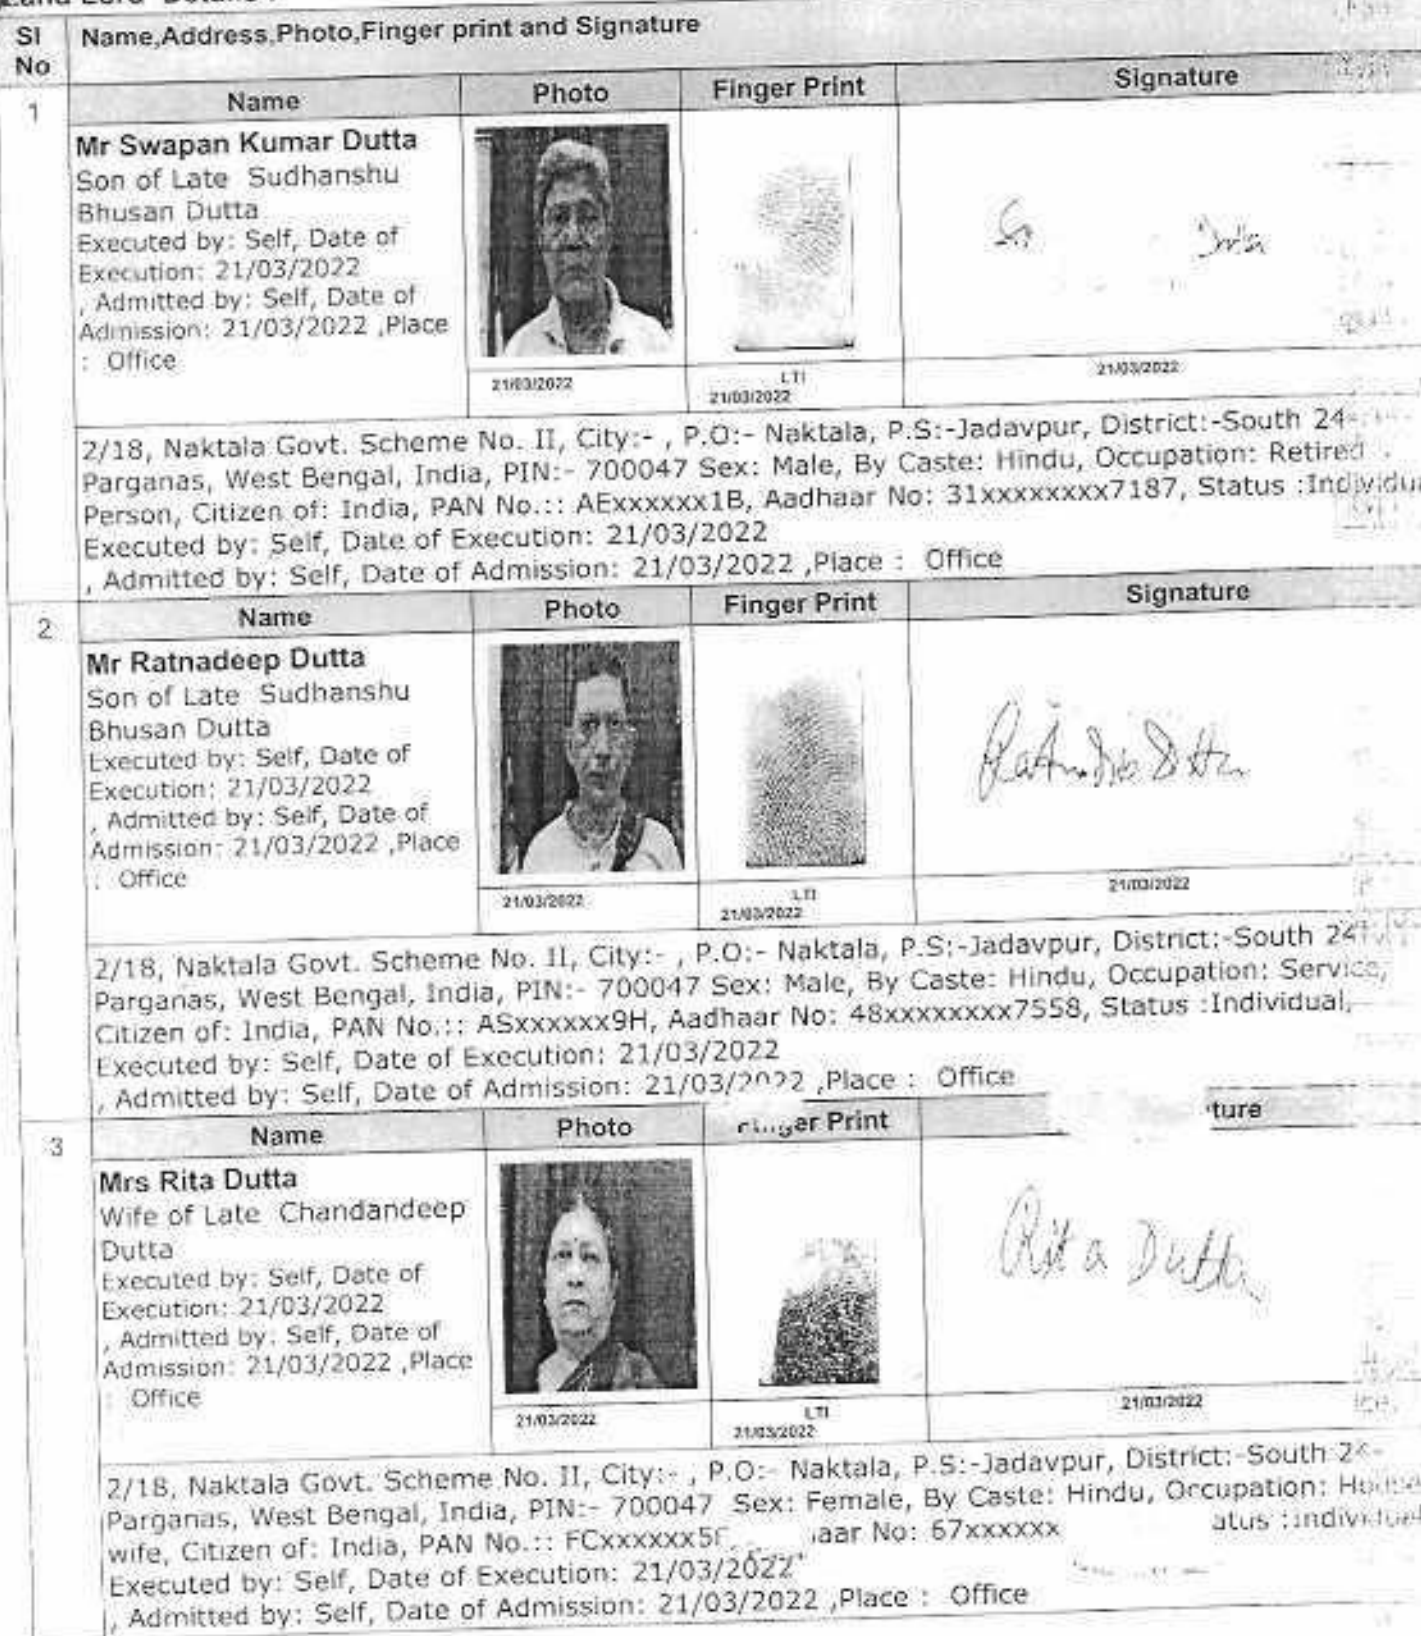 Sl No
Name,Address,Photo,Finger print and Signature
1
Name Photo Finger Print Signature
Mr Swapan Kumar Dutta
Son of Late Sudhanshu
Bhusan Dutta
Executed by: Self, Date of
Execution: 21/03/2022
, Admitted by: Self, Date of
Admission: 21/03/2022 ,Place
: Office
21/03/2022
LTI
21/03/2022
21/03/2022
2/18, Naktala Govt. Scheme No. II, City:- , P.O:- Naktala, P.S:-Jadavpur, District:-South 24-
Parganas, West Bengal, India, PIN:- 700047 Sex: Male, By Caste: Hindu, Occupation: Retired
Person, Citizen of: India, PAN No.:: AExxxxxx1B, Aadhaar No: 31xxxxxxxx7187, Status :Individu
Executed by: Self, Date of Execution: 21/03/2022
, Admitted by: Self, Date of Admission: 21/03/2022 ,Place : Office
2
Name Photo Finger Print Signature
Mr Ratnadeep Dutta
Son of Late Sudhanshu
Bhusan Dutta
Executed by: Self, Date of
Execution: 21/03/2022
, Admitted by: Self, Date of
Admission: 21/03/2022 ,Place
: Office
21/03/2022
LTI
21/03/2022
21/03/2022
2/18, Naktala Govt. Scheme No. II, City:- , P.O:- Naktala, P.S:-Jadavpur, District:-South 24
Parganas, West Bengal, India, PIN:- 700047 Sex: Male, By Caste: Hindu, Occupation: Service,
Citizen of: India, PAN No.:: ASxxxxxx9H, Aadhaar No: 48xxxxxxxx7558, Status :Individual,
Executed by: Self, Date of Execution: 21/03/2022
, Admitted by: Self, Date of Admission: 21/03/2022 ,Place : Office
3
Name Photo Print ture
Mrs Rita Dutta
Wife of Late Chandandeep
Dutta
Executed by: Self, Date of
Execution: 21/03/2022
, Admitted by: Self, Date of
Admission: 21/03/2022 ,Place
: Office
Rita Dutta
21/03/2022
LTI
21/03/2022
21/03/2022
2/18, Naktala Govt. Scheme No. II, City:- , P.O:- Naktala, P.S:-Jadavpur, District:-South 24-
Parganas, West Bengal, India, PIN:- 700047 Sex: Female, By Caste: Hindu, Occupation: House
wife, Citizen of: India, PAN No.:: FCxxxxxx5 aar No: 67xxxxxx atus :Individual
Executed by: Self, Date of Execution: 21/03/2022
, Admitted by: Self, Date of Admission: 21/03/2022 ,Place : Office